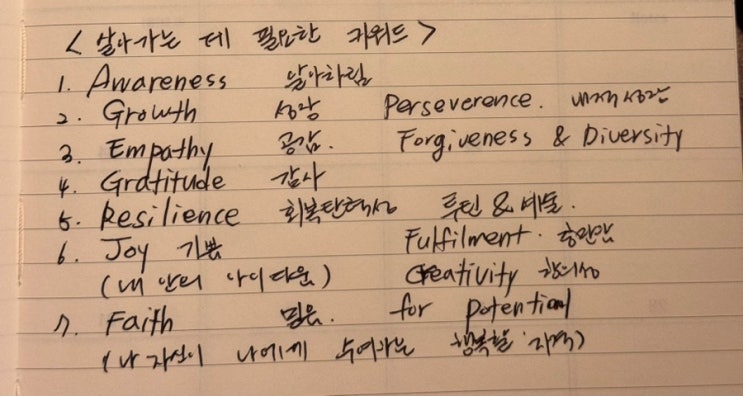 < 살아가는 데 필요한 키워드 >
1. Awareness 알아차림
2. Growth 성장 Perseverence. 내적성장
3. Empathy 공감. Forgiveness & Diversity
4. Gratitude 감사
5. Resilience 회복탄력성 루틴 & 예술.
6. Joy 기쁨 Fulfilment. 충만감
(내 안의 아이다움) Creativity 창의성
7. Faith 믿음. for potential
(나 자신이 나에게 부여하는 행복할 자격)